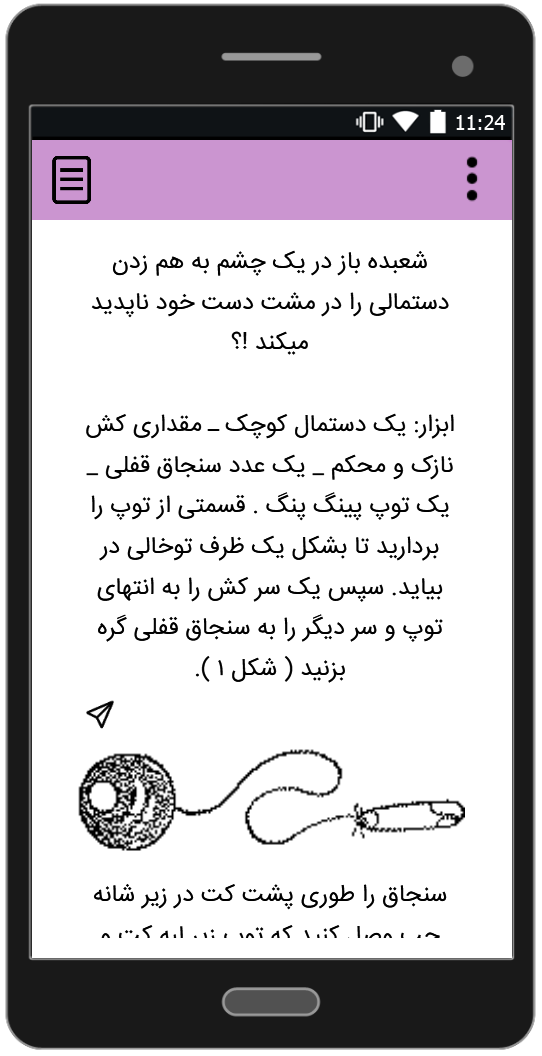 11:24
شعبده باز در یک چشم به هم زدن
دستمالی را در مشت دست خود ناپدید
میکند !؟
ابزار: یک دستمال کوچک ـ مقداری کش
نازک و محکم _ یک عدد سنجاق قفلی _
یک توپ پینگ پنگ . قسمتی از توپ را
بردارید تا بشکل یک ظرف توخالی در
بیاید. سپس یک سر کش را به انتهای
توپ و سر دیگر را به سنجاق قفلی گره
بزنید ( شکل ۱ ).
سنجاق را طوری پشت کت در زیر شانه
چپ وصل کنید که توپ زیر لبه کت و